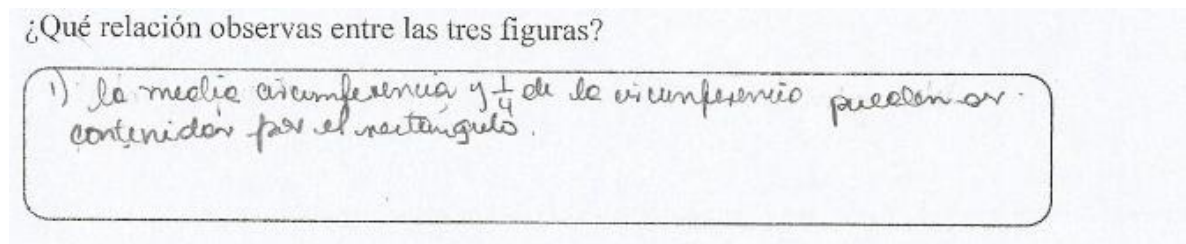 ¿Qué relación observas entre las tres figuras?
1) la media circunferencia y 1/4 de la circunferencia pueden ser
contenidos por el rectángulo.